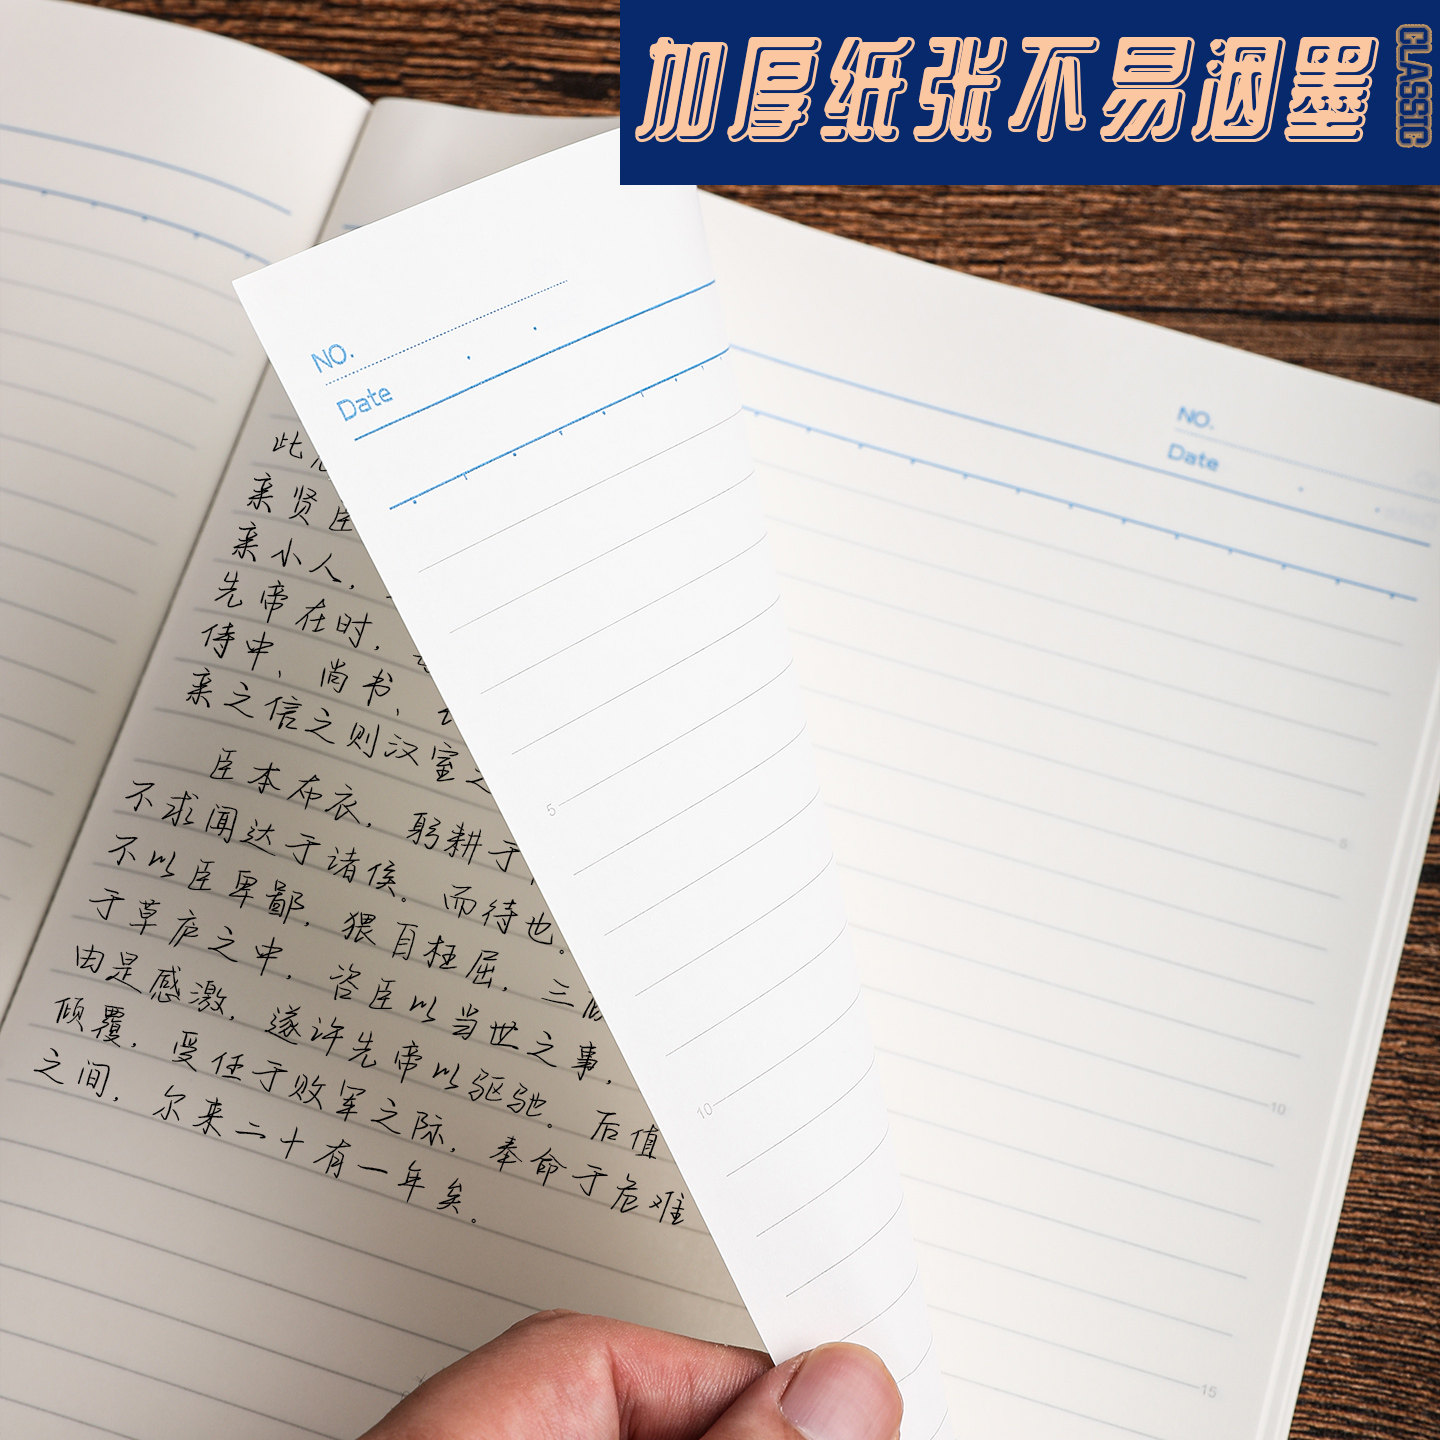 加厚纸张不易洇墨
CLASSIC
NO.
Date
5
10
此
亲贤臣
亲小人，
先帝在时，
侍中、尚书、
亲之信之则汉室之
臣本布衣，躬耕于
不求闻达于诸侯。而待也。
不以臣卑鄙，猥自枉屈，三
于草庐之中，咨臣以当世之事，
由是感激，遂许先帝以驱驰。后值
倾覆，受任于败军之际，奉命于危难
之间，尔来二十有一年矣。
NO.
Date
5
10
15